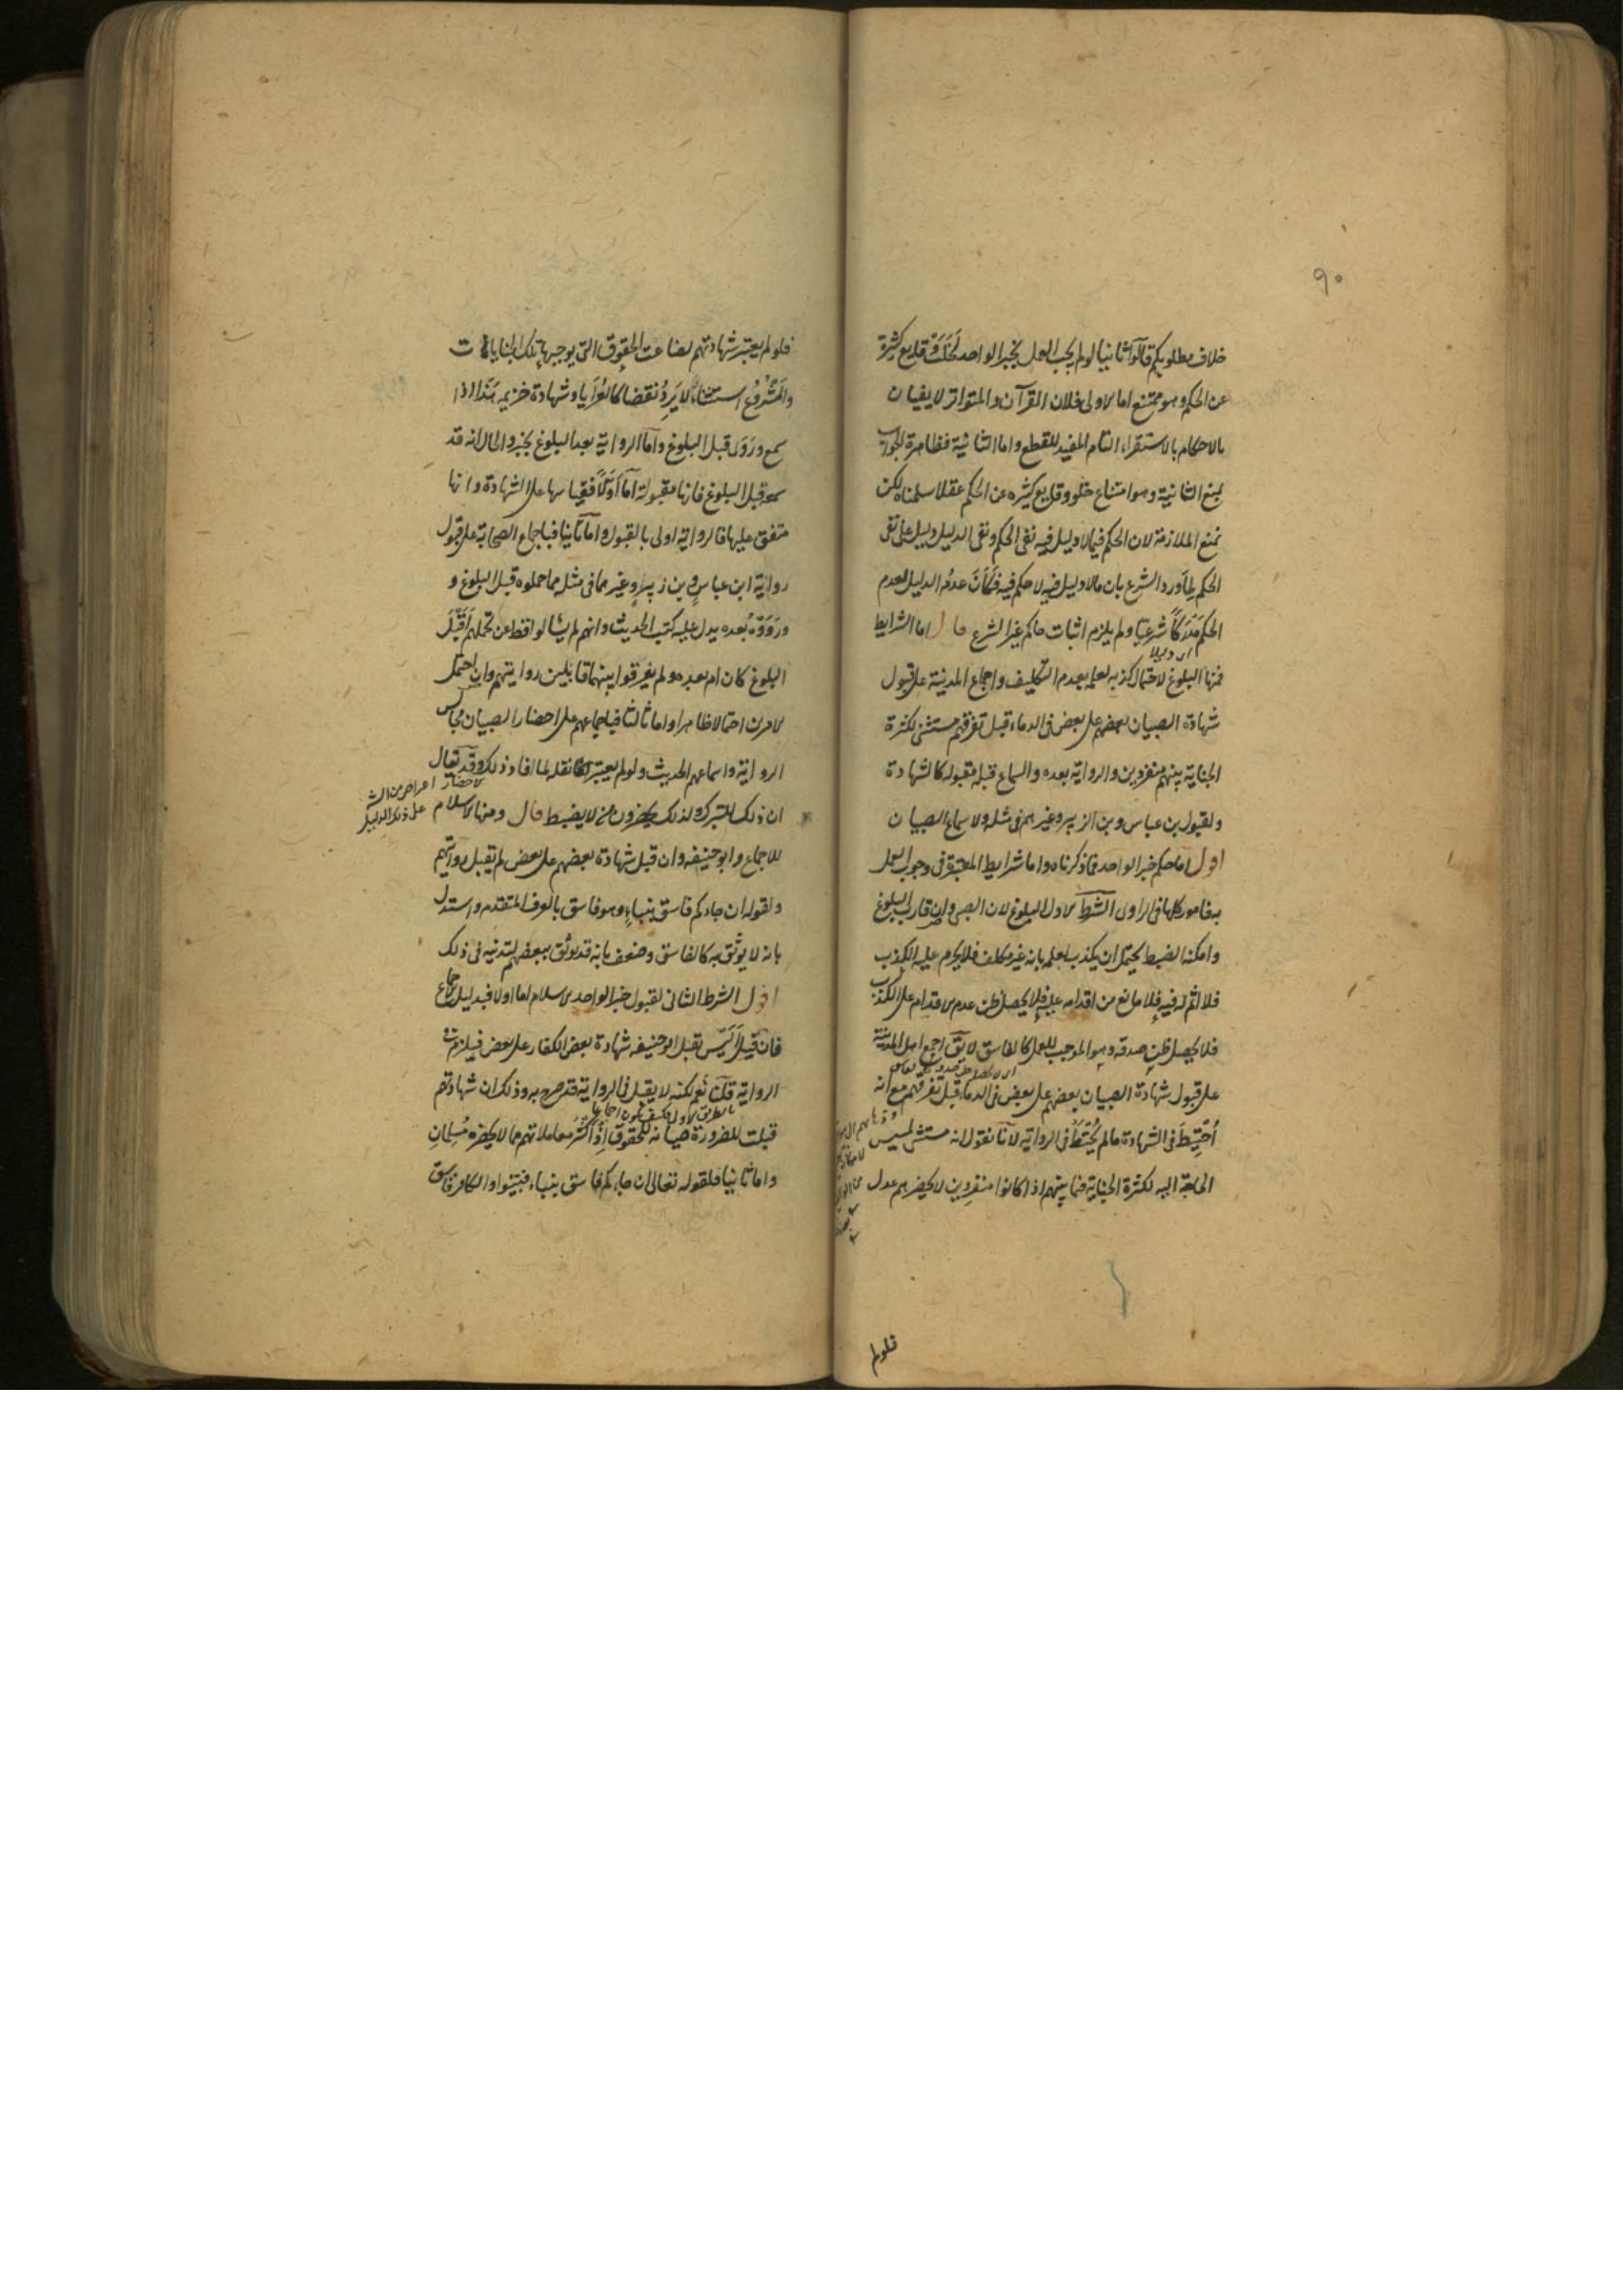 ٩٠
خلاف مطلوبكم قالوا ثانيا لو لم يجب العمل بخبر الواحد لخلت وقايع كثيرة
عن الحكم وهو ممتنع اما الاولى فلان القرآن والمتواتر لا يفيان
بالاحكام بالاستقراء التام المفيد للقطع واما الثانية فظاهرة الجواب
بمنع الثانية وهو امتناع خلو وقايع كثيره عن الحكم عقلا سلمناه لكن
نمنع الملازمة لان الحكم فيما لا دليل فيه نفى الحكم ونفى الدليل دليل على نفى
الحكم لما ورد الشرع بان مالا دليل فيه لا حكم فيه فكان عدم الدليل لعدم
الحكم مدركا شرعيا ولم يلزم اثبات حاكم غير الشرع قال اما الشرايط
اى دليلا
فمنها البلوغ لاحتمال كذبه لعلمه بعدم التكليف واجماع المدينة على قبول
شهادة الصبيان بعضهم على بعض فى الدماء قبل تفرقهم مستثنى لكثرة
الجناية بينهم منفردين والرواية بعده والسماع قبله مقبوله كالشهادة
ولقبول بن عباس وبن الزبير وغيرهم فى مثله ولاسماع الصبيان
اقول اما حكم خبر الواحد فما ذكرناه واما شرايط المعتبرة فى وجوب العمل
به فامور كلها فى الراوى الشرط الاول البلوغ لان الصبى وان قارب البلوغ
وامكنه الضبط يحتمل ان يكذب لعلمه بانه غير مكلف فلا يحرم عليه الكذب
فلا اثم له فيه فلا مانع من اقدامه عليه فلا يحصل ظن عدم الاقدام على الكذب
فلا يحصل ظن صدقه وهو الموجب للعمل كالفاسق لا يق اجمع اهل المدينة
على قبول شهادة الصبيان بعضهم على بعض فى الدماء قبل تفرقهم مع انه
احتيط فى الشهادة مالم يحتط فى الرواية لانا نقول انه مستثنى لمسيس
الحاجة اليه لكثرة الجناية فيما بينهم اذا كانوا منفردين لا يحضرهم عدل
فلو لم
فلو لم يعتبر شهادتهم لضاعت الحقوق التى يوجبها تلك الجنايات
والمشروع استثناء لا يرد نقضا كالعرايا وشهادة خزيمه هذا اذا
سمع وروى قبل البلوغ واما الرواية بعد البلوغ بخبر والحال انه قد
سمعه قبل البلوغ فانها مقبولة اما اولا فقياسها على الشهادة وانها
متفق عليها فالرواية اولى بالقبول واما ثانيا فباجماع الصحابة على قبول
رواية ابن عباس وبن زبير وغيرهما فى مثله مما حملوه قبل البلوغ و
ورووه بعده يدل عليه كتب الحديث وانهم لم يسالوا قط عن تحملهم اقبل
البلوغ كان ام بعده ولم يفرقوا بينهما قابلين روايتهم وان احتمل
الامرين احتمالا ظاهرا واما ثالثا فباجماعهم على احضار الصبيان مجالس
الرواية واسماعهم الحديث ولو لم يعتبر نقله لما افاد ذلك وقد يقال
ان ذلك للتبرك ولذلك يحضرون من لا يضبط قال ومنها الاسلام
اعراض من الشارح
على ذكر الدليل
للاجماع وابو حنيفه وان قبل شهادة بعضهم على بعض لم يقبل روايتهم
ولقوله ان جاءكم فاسق بنباء وهو فاسق بالعرف المتقدم واستدل
بانه لا يوثق به كالفاسق وضعف بانه قد يوثق ببعضهم لتدينه فى ذلك
اقول الشرط الثانى لقبول خبر الواحد الاسلام اما اولا فبدليل الاجماع
فان قيل اليس تقبل ابو حنيفه شهادة بعض الكفار على بعض فيلزم فى
الرواية قلنا نعم لكنه لا يقبل فى الرواية قد صرح به وذلك ان شهادتهم
قبلت للضرورة صيانة للحقوق اذ اكثر معاملاتهم مما لا يحضره مسلمان
واما ثانيا فلقوله تعالى ان جاءكم فاسق بنباء فتبينوا والكافر فاسق